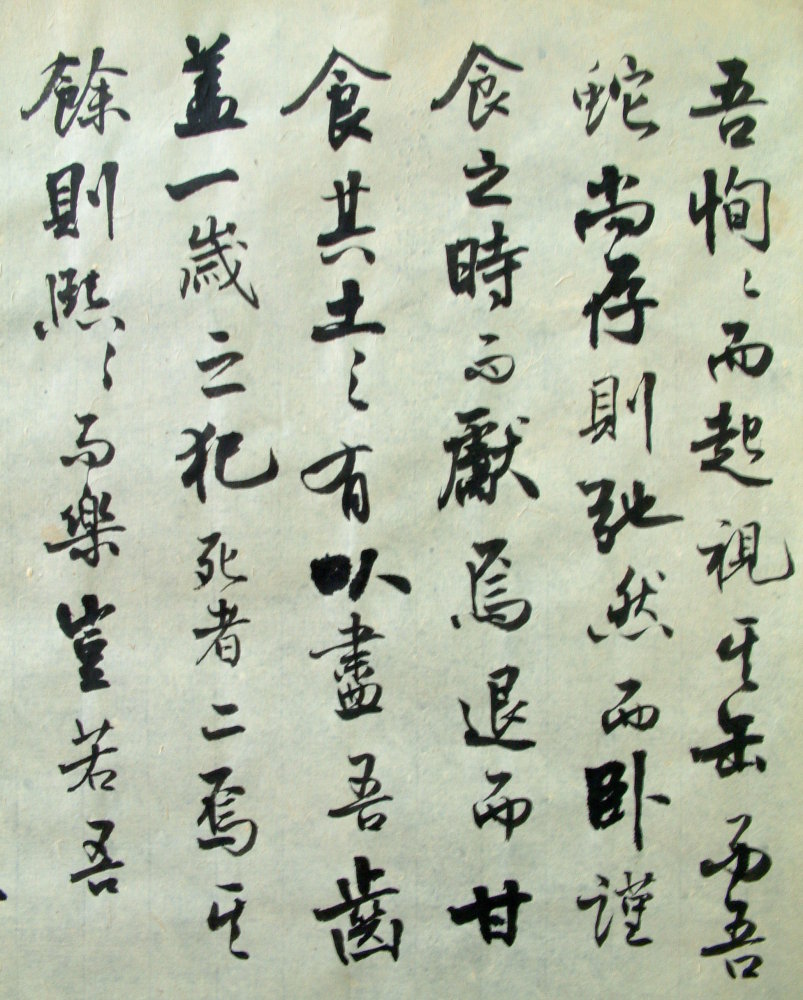 吾恂〻而起視其缶而吾
蛇尚存則弛然而卧謹
食之時而獻焉退而甘
食其土〻有以盡吾齒
盖一歲之犯死者二焉其
餘則熙〻而樂豈若吾